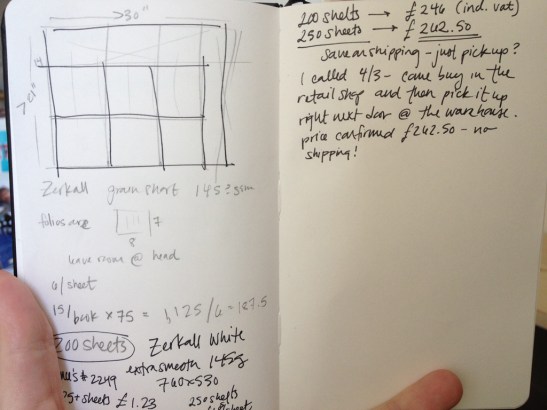 >30"
Zerkall grain short 145?gsm
folios are 7
8
leave room @ head
6/sheet
15/book x 75 = 1,125/6 = 187.5
200 sheets Zerkall White
extra smooth 145g
#2249 760x530
25+ sheets £1.23 250 sheets
200 sheets → £246 (incl. vat)
250 sheets → £242.50
save on shipping - just pick up?
I called 4/3 - can buy in the
retail shop and then pick it up
right next door @ the warehouse.
price confirmed £242.50 - no
shipping!